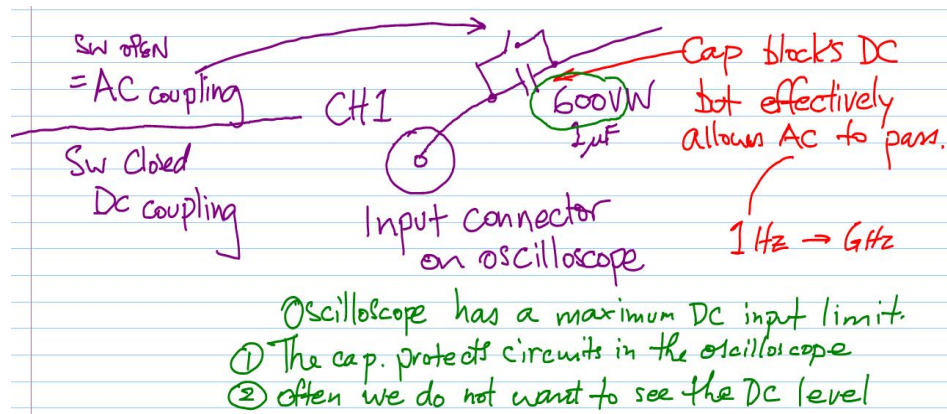 SW OPEN
= AC coupling
SW Closed
DC coupling
CH1
600VW
1µF
Input connector
on oscilloscope
Cap blocks DC
but effectively
allows AC to pass.
1 Hz → GHz
Oscilloscope has a maximum DC input limit.
① The cap. protects circuits in the oscilloscope
② often we do not want to see the DC level